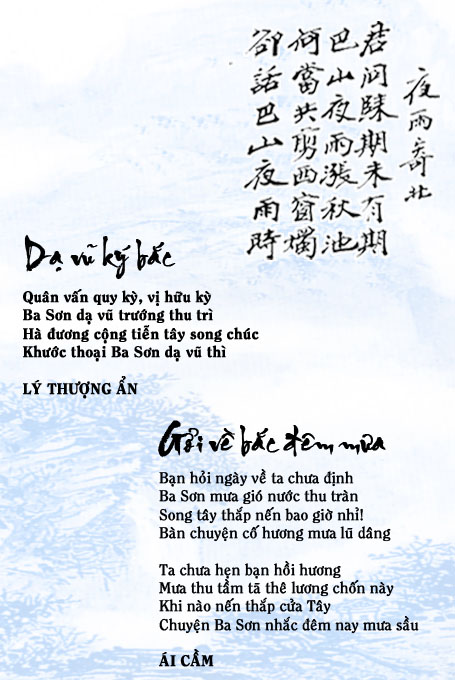 夜雨寄北
君问歸期未有期
巴山夜雨漲秋池
何當共剪西窗燭
卻話巴山夜雨時
Dạ vũ ký bắc
Quân vấn quy kỳ, vị hữu kỳ
Ba Sơn dạ vũ trướng thu trì
Hà đương cộng tiễn tây song chúc
Khước thoại Ba Sơn dạ vũ thì
LÝ THƯỢNG ẨN
Gởi về bắc đêm mưa
Bạn hỏi ngày về ta chưa định
Ba Sơn mưa gió nước thu tràn
Song tây thắp nến bao giờ nhỉ!
Bàn chuyện cố hương mưa lũ dâng
Ta chưa hẹn bạn hồi hương
Mưa thu tầm tã thê lương chốn này
Khi nào nến thắp cửa Tây
Chuyện Ba Sơn nhắc đêm nay mưa sầu
ÁI CẦM